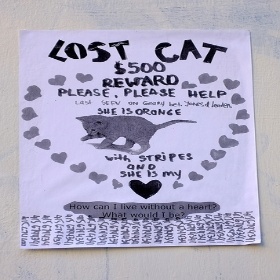 LOST CAT
$500
REWARD
PLEASE, PLEASE HELP
LAST SEEN ON Geary bet. Jones &
SHE IS ORANGE
with STRIPES
AND
SHE IS MY
How can I live without a heart?
What would I be?